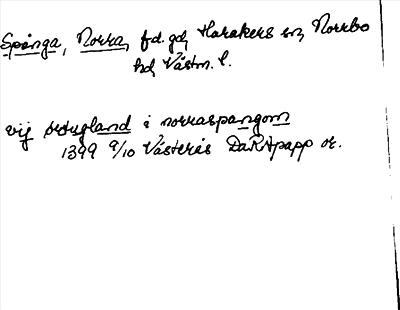 Spånga, Norra, f.d. gd, Harakers sn, Norrbo
hd, Västm. l.
vij ortugland i norraspangom
1399 9/10 Västerås DaRApapp or.